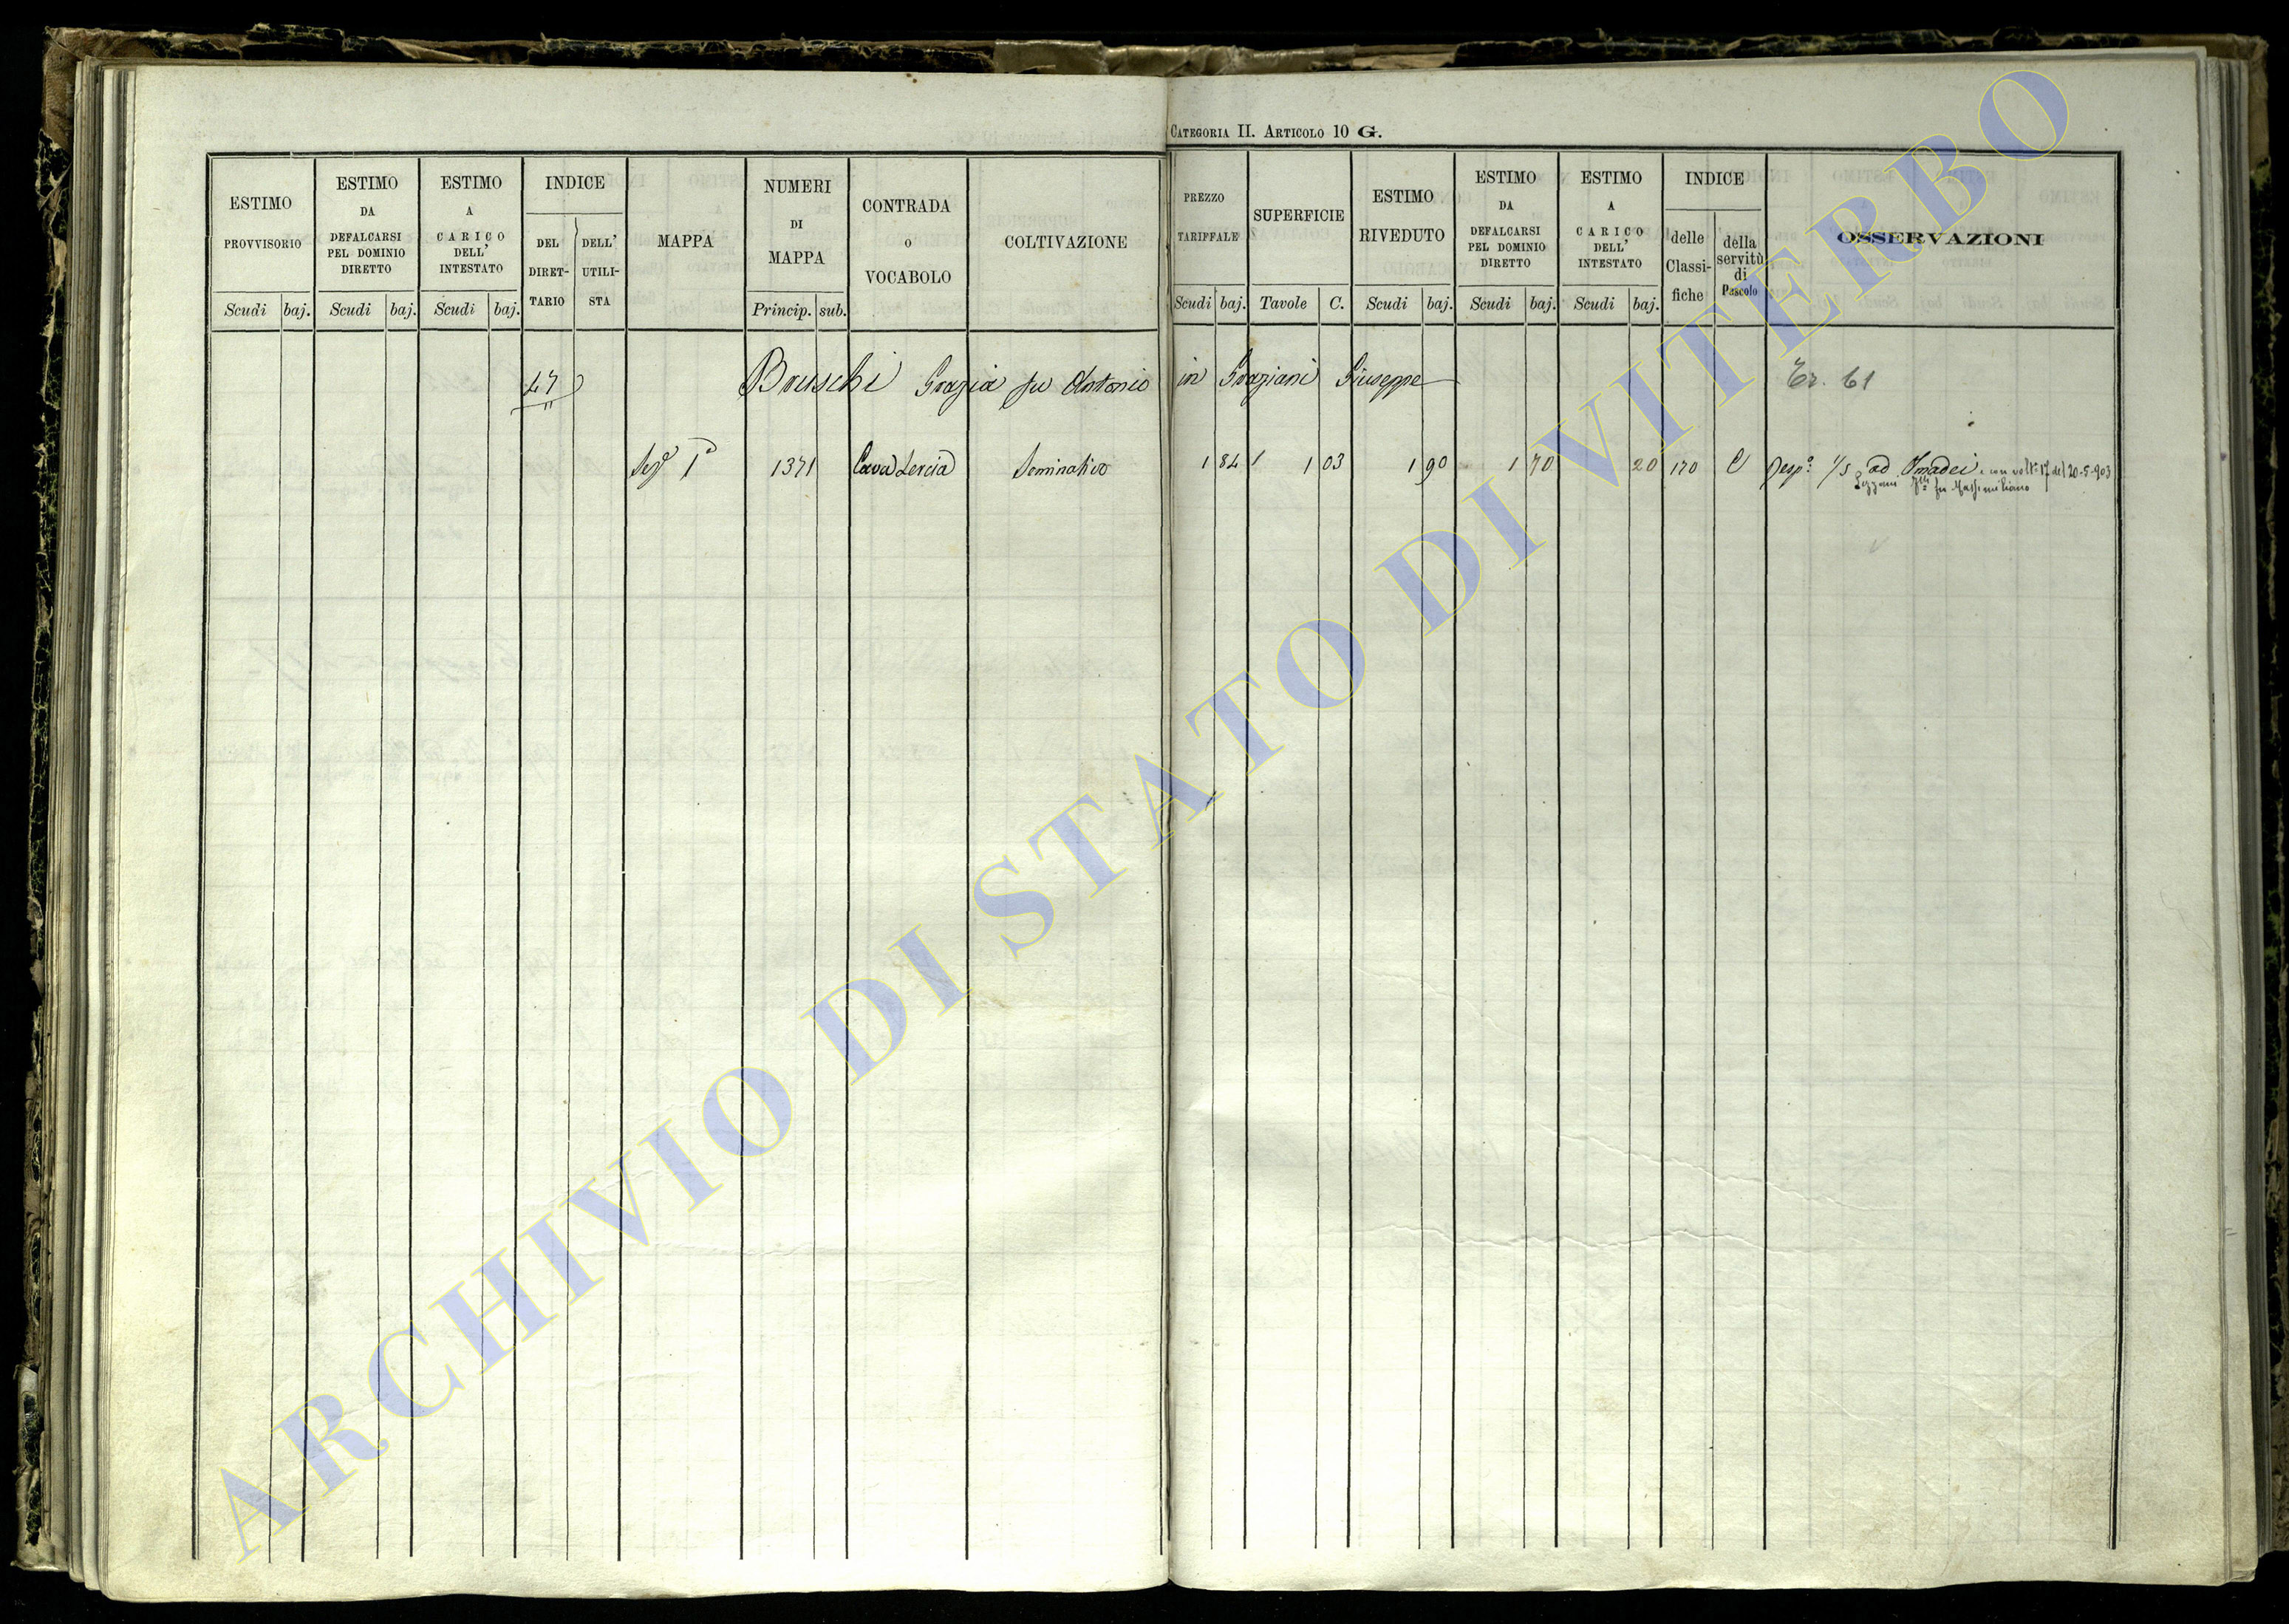 CATEGORIA II. ARTICOLO 10 G.
ESTIMO PROVVISORIO
Scudi baj.
ESTIMO DA DEFALCARSI PEL DOMINIO DIRETTO
Scudi baj.
ESTIMO A CARICO DELL' INTESTATO
Scudi baj.
INDICE
DEL DIRET-TARIO
DELL' UTILI-STA
MAPPA
NUMERI DI MAPPA
Princip. sub.
CONTRADA O VOCABOLO
COLTIVAZIONE
PREZZO TARIFFALE
Scudi baj.
SUPERFICIE
Tavole C.
ESTIMO RIVEDUTO
Scudi baj.
ESTIMO DA DEFALCARSI PEL DOMINIO DIRETTO
Scudi baj.
ESTIMO A CARICO DELL' INTESTATO
Scudi baj.
INDICE
delle Classi-fiche
della servitù di Pascolo
OSSERVAZIONI
47 Bruschi Grazia fu Antonio in Graziani Giuseppe 61
1371 Cava Lercia Seminativo 1 84 1 03 1 90 1 70 20 170 C Resp. 1/5 ad Amadei con volt. 17 del 20-5-903
fu Massimiliano
ARCHIVIO DI STATO DI VITERBO